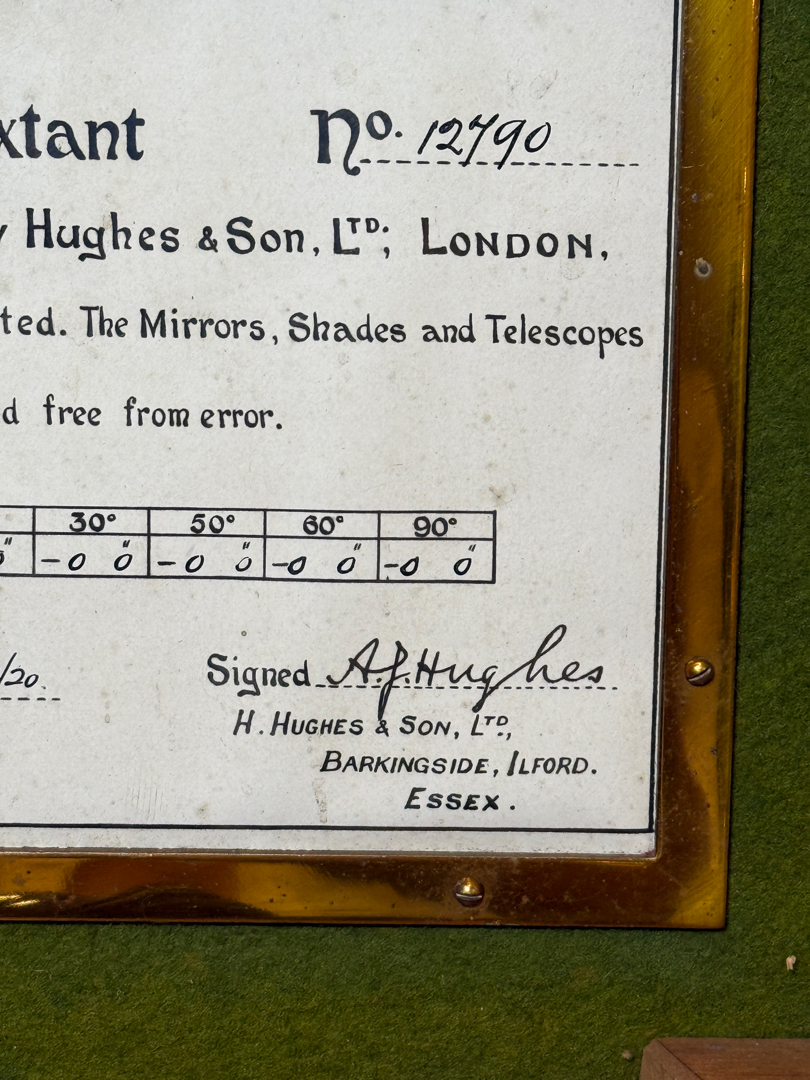 xtant No. 12790
y Hughes & Son, LTD., LONDON,
ted. The Mirrors, Shades and Telescopes
d free from error.
30° 50° 60° 90°
" -0 0" -0 0" -0 0" -0 0"
/20. Signed A.J. Hughes
H. HUGHES & SON, LTD.,
BARKINGSIDE, ILFORD.
ESSEX.